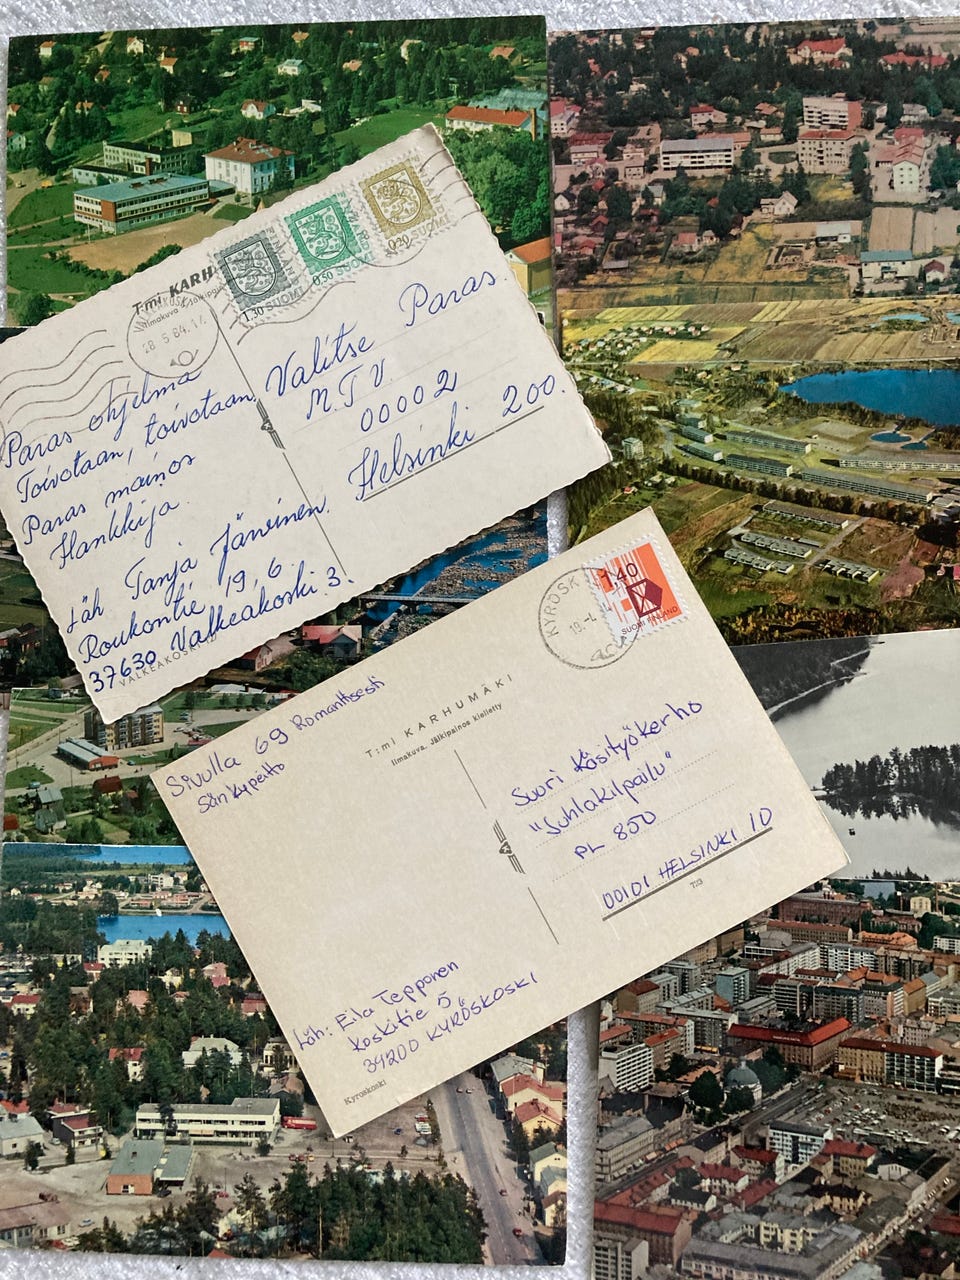 T:mi KARH
Ilmakuva Jälkipai
28.5.84.17
1.30 SUOMI
0,50 SUOMI
0,20 SUOMI
Paras ohjelma
Toivotaan, toivotaan
Paras mainos
Hankkija.
Läh Tanja Järvinen.
Roukontie 19,6.
37630 Valkeakoski.3.
VALKEAKOSKI
Valitse Paras
M.T.V.
00002
Helsinki 200.
KYRÖSK
19.-1.
1,40
SUOMI FINLAND
Sivulla 69 Romanttisesti
Sänkypeitto
T:mi KARHUMÄKI
Ilmakuva. Jälkipainos kielletty
Suuri Käsityökerho
"Juhlakilpailu"
PL 850
00101 HELSINKI 10
T:3
Läh: Ela Tepponen
Koskitie 5
34200 KYRÖSKOSKI
Kyröskoski